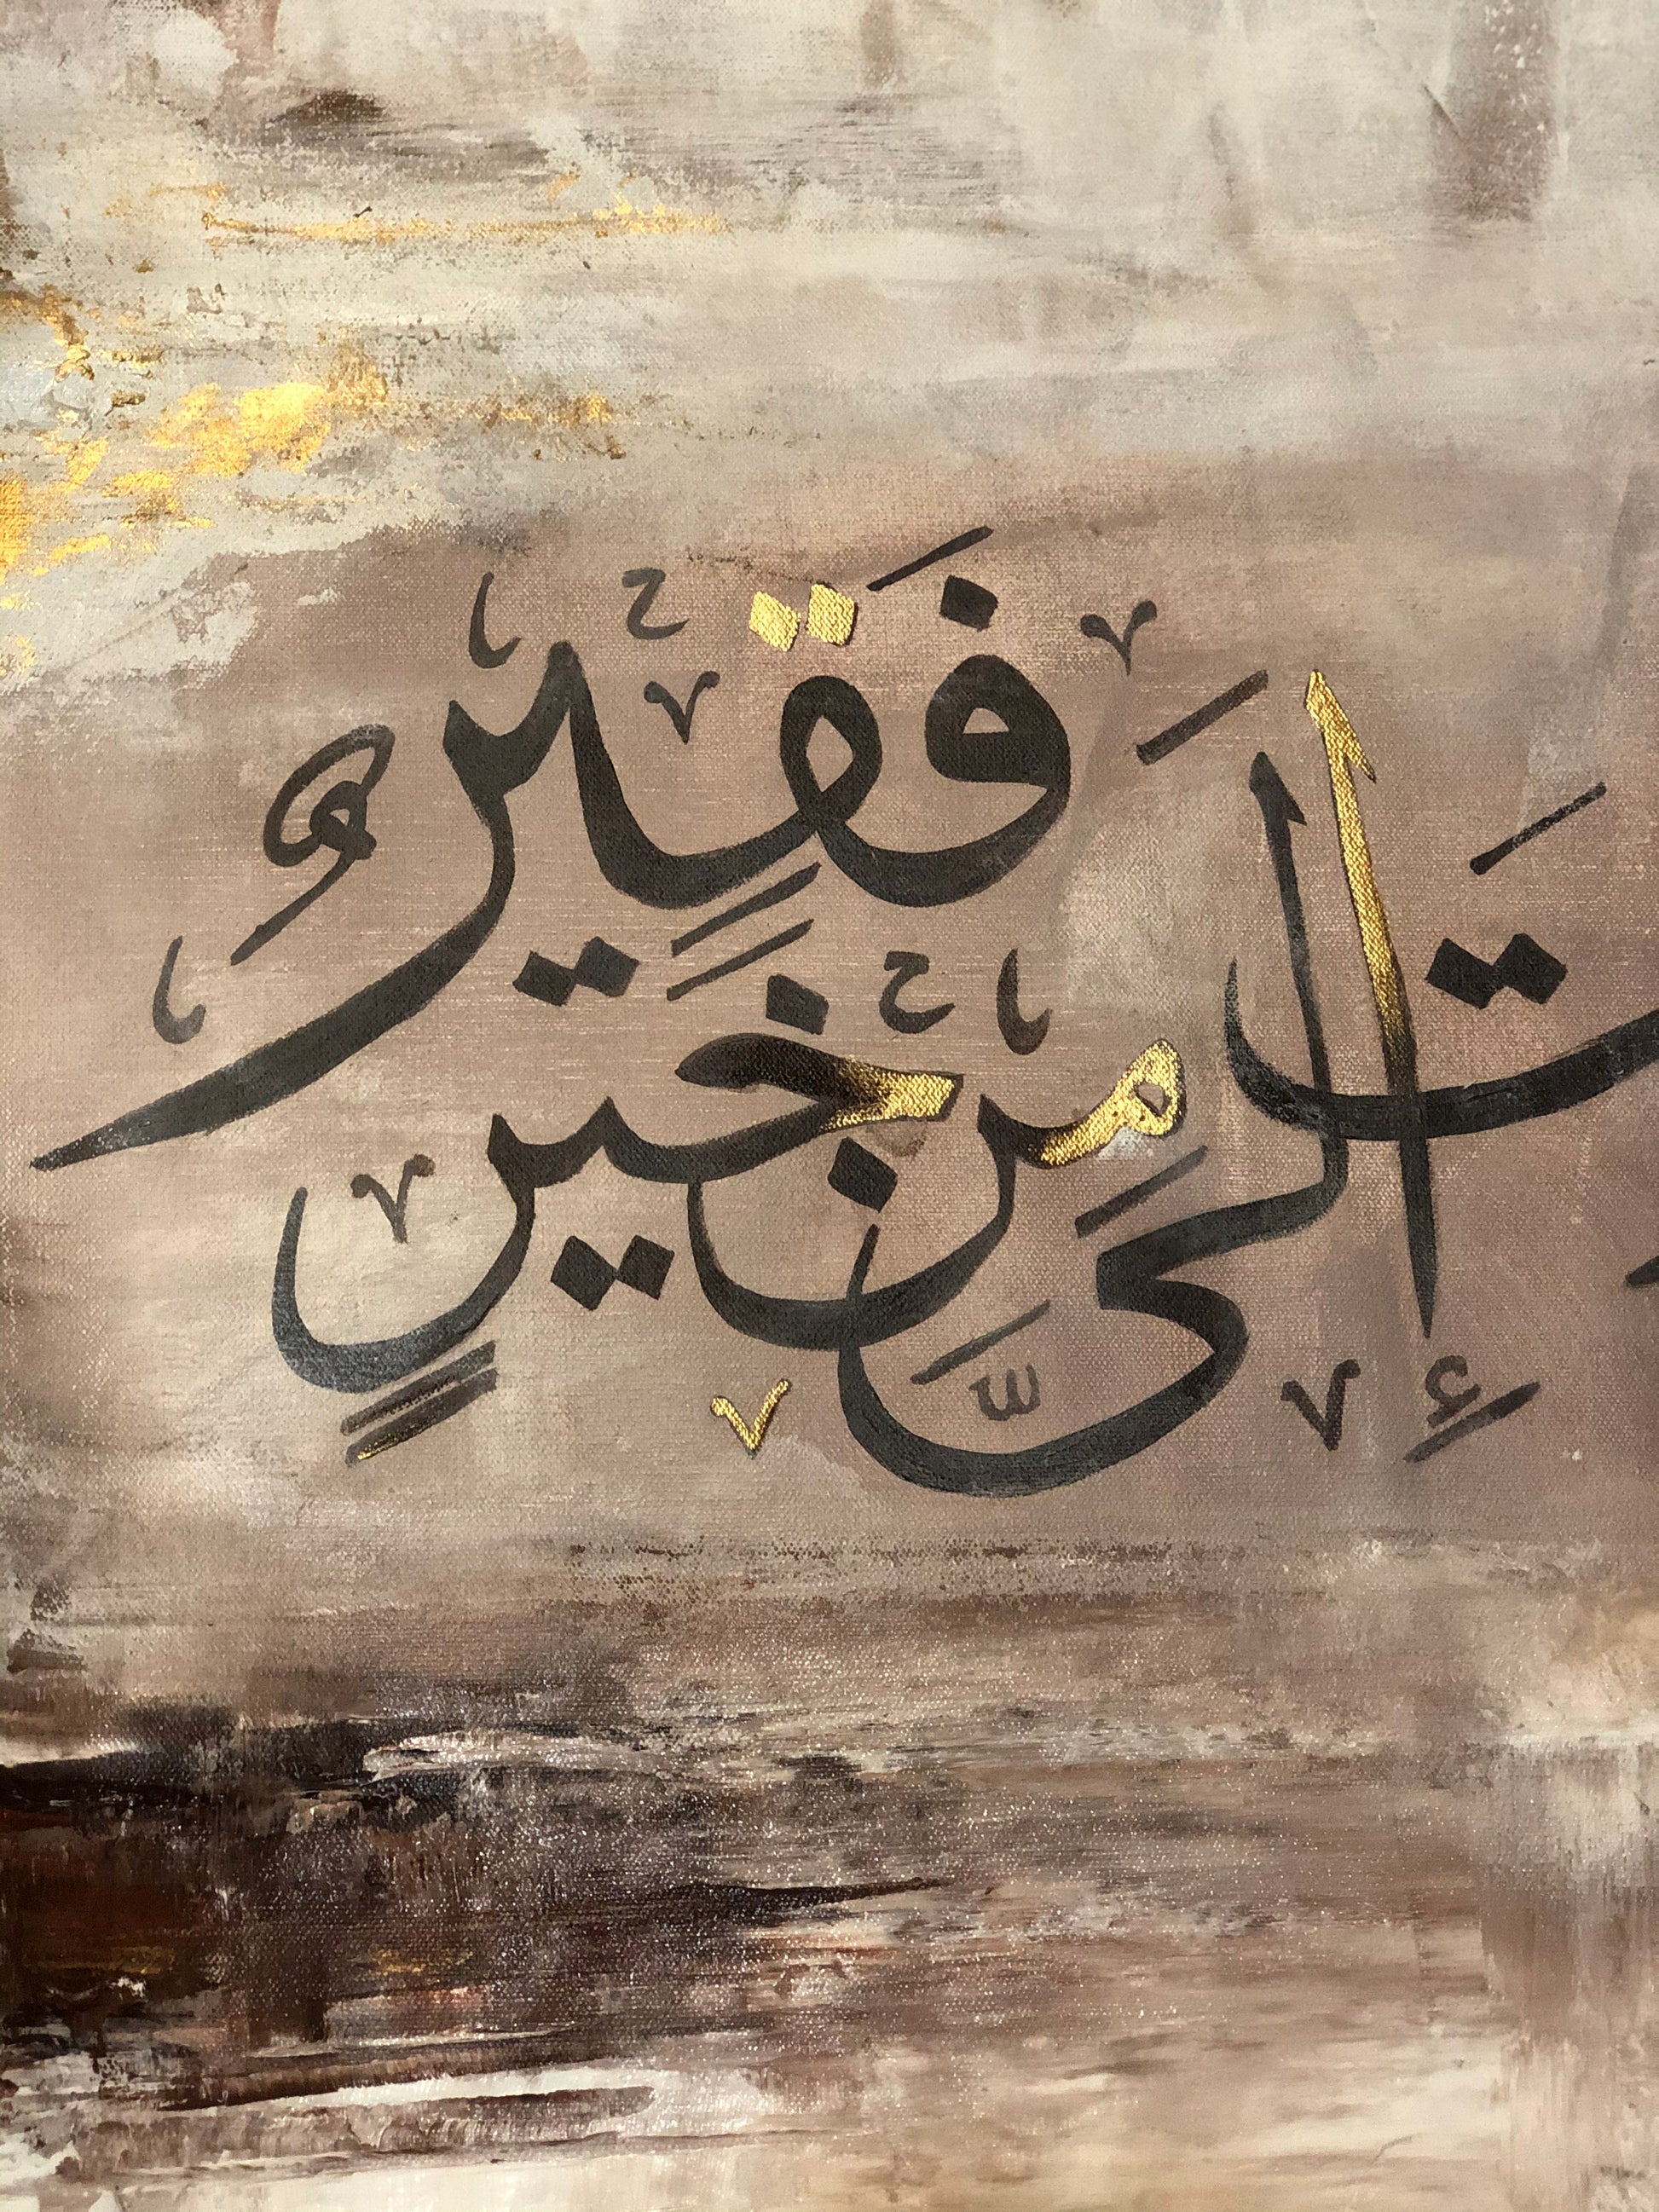 تَ إِلَيَّ مِنْ خَيْرٍ فَقِيرٌ